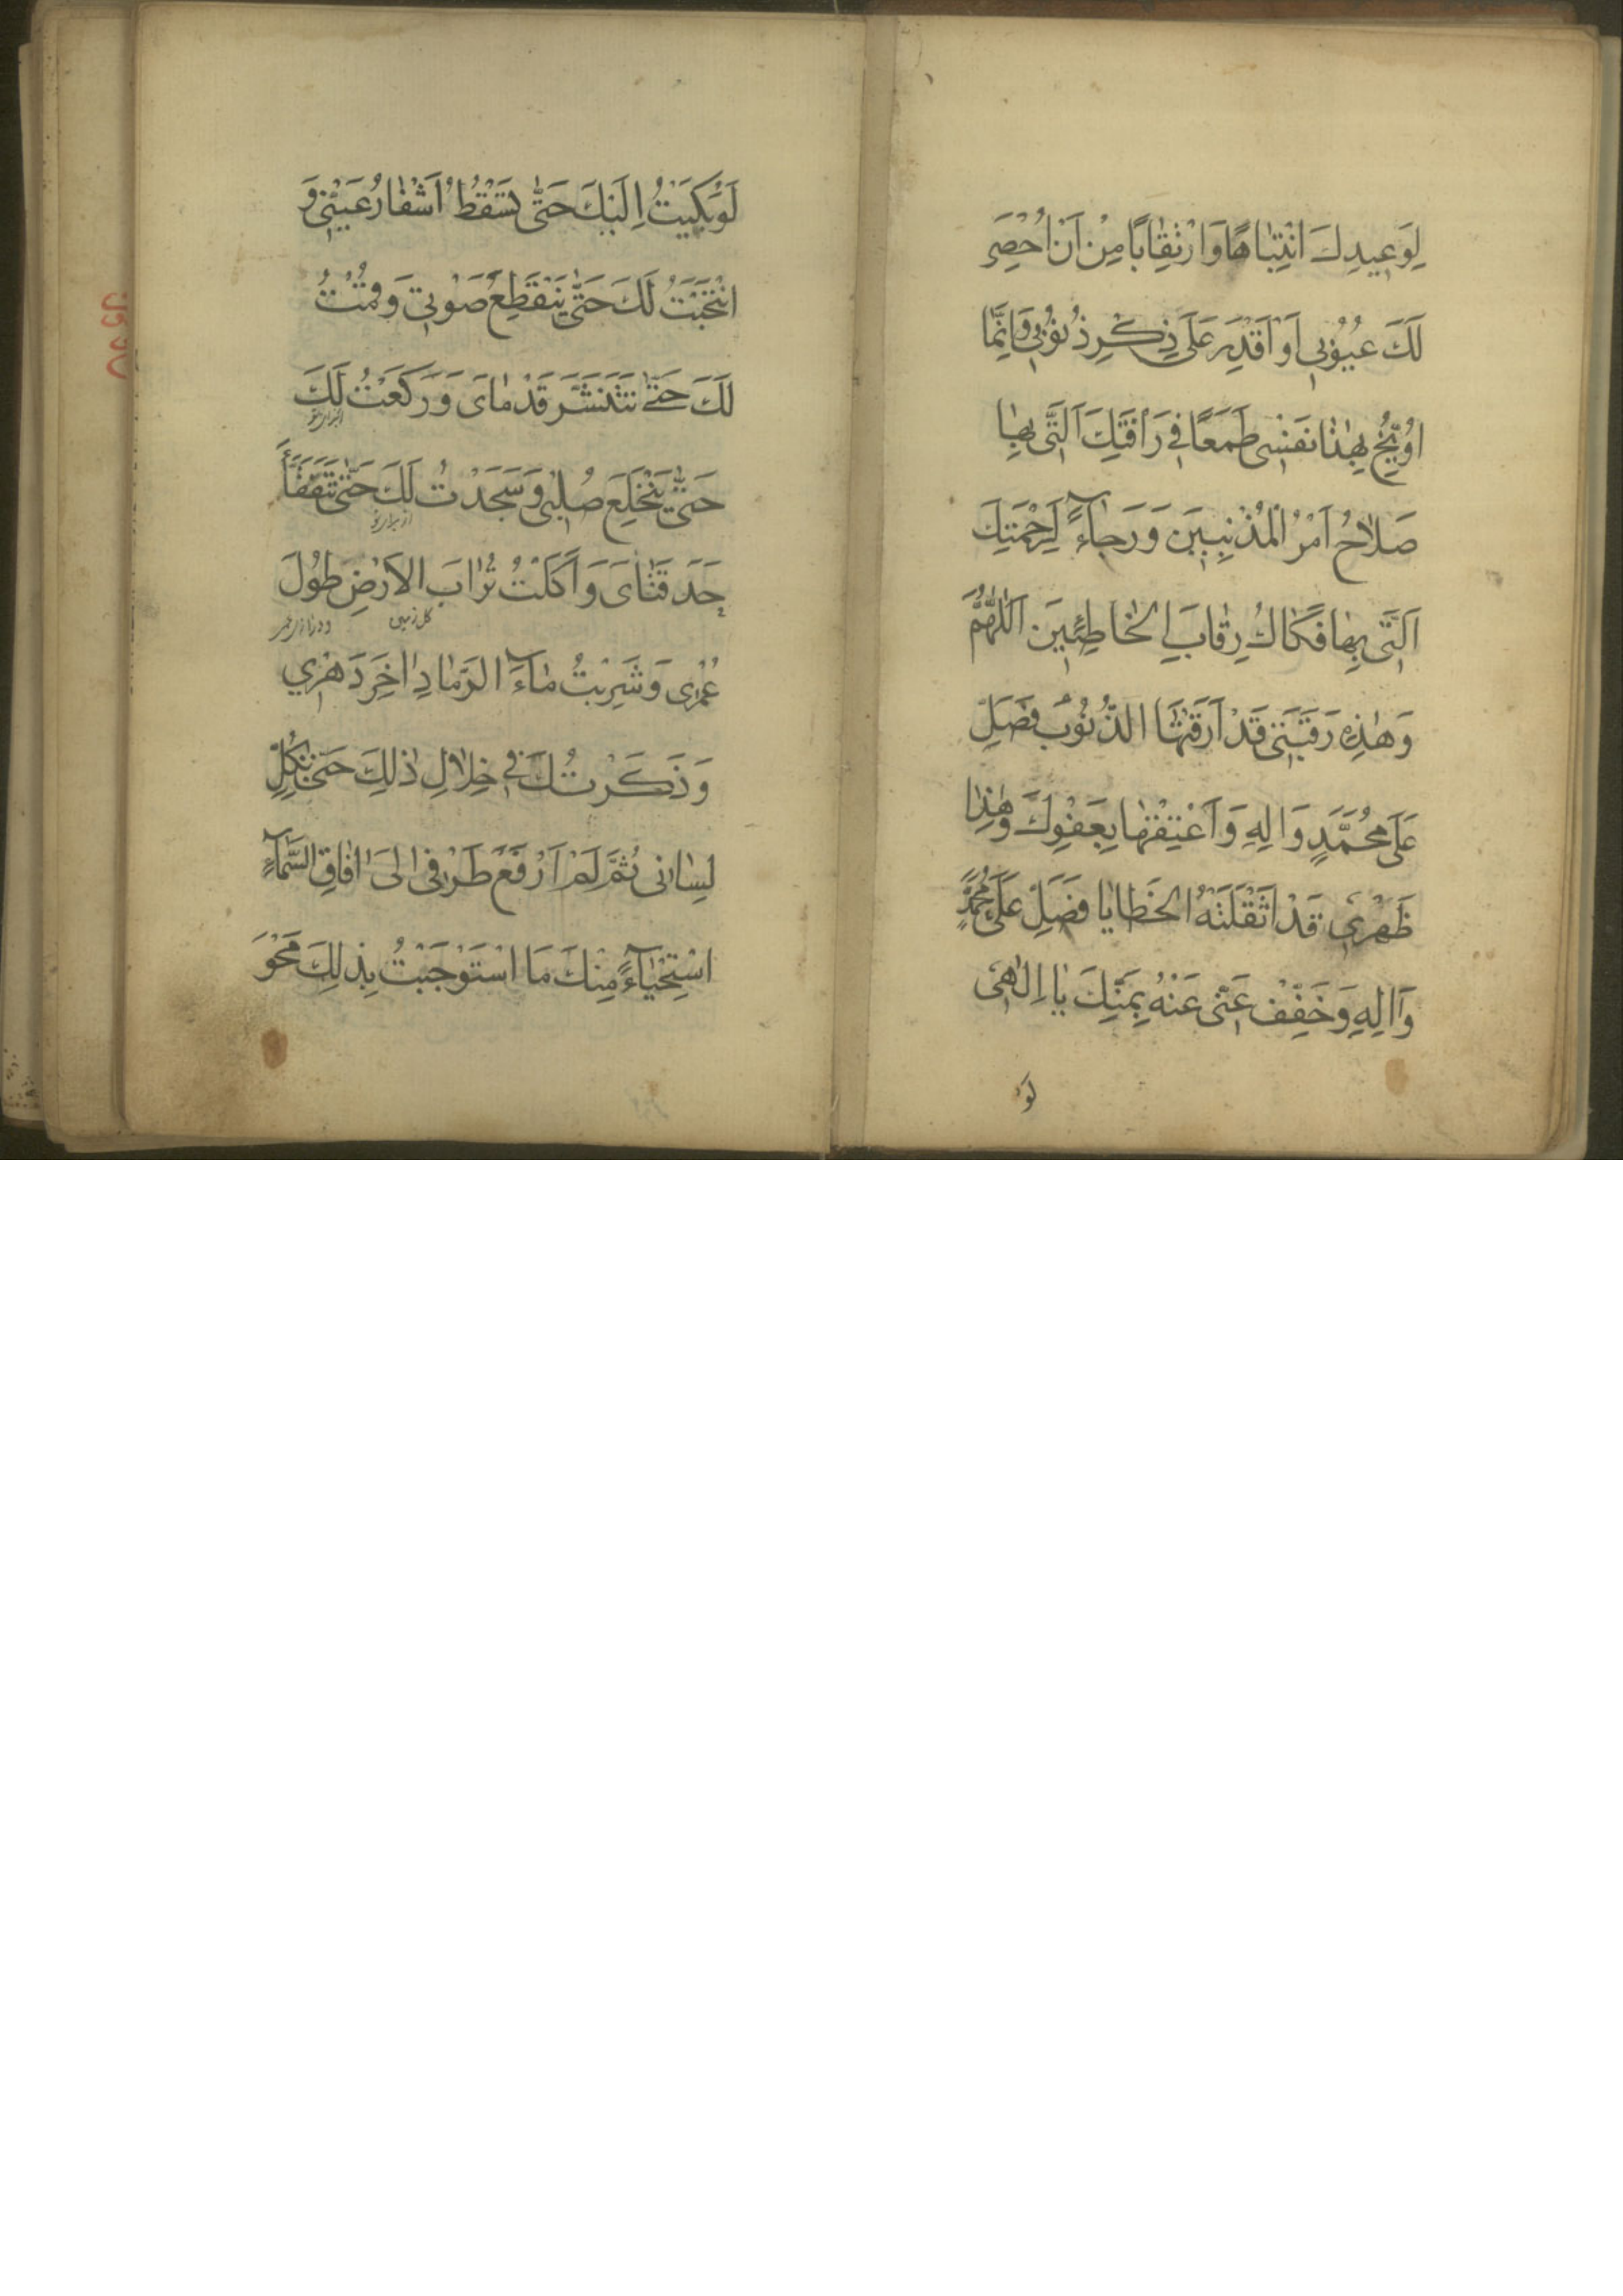 لِوَعِيدِكَ انْتِبَاهًا وَارْتِقَابًا مِنْ اَنْ اُحْصِىَ
لَكَ عُيُوبِي اَوْ اَقْدِرَ عَلَى ذِكْرِ ذُنُوبِي وَاِنَّمَا
اُوَبِّخُ بِهٰذَا نَفْسِى طَمَعًا فِي رَأْفَتِكَ الَّتِى بِهَا
صَلَاحُ اَمْرِ الْمُذْنِبِينَ وَرَجَآءً لِرَحْمَتِكَ
اَلَّتِى بِهَا فَكَاكُ رِقَابِ الْخَاطِئِينَ اَللّٰهُمَّ
وَهٰذِهِ رَقَبَتِى قَدْ اَرَقَّتْهَا الذُّنُوبُ فَصَلِّ
عَلَى مُحَمَّدٍ وَالِهِ وَاَعْتِقْهَا بِعَفْوِكَ وَهٰذَا
ظَهْرِى قَدْ اَثْقَلَتْهُ الْخَطَايَا فَصَلِّ عَلَى مُحَمَّدٍ
وَاٰلِهِ وَخَفِّفْ عَنِّى عَنْهُ بِمَنِّكَ يَا اِلٰهِى
لَوْ
لَوْ بَكَيْتُ اِلَيْكَ حَتّٰى تَسْقُطَ اَشْفَارُ عَيْنَىَّ وَ
انْتَحَبْتُ لَكَ حَتّٰى يَنْقَطِعَ صَوْتِي وَقُمْتُ
لَكَ حَتّٰى تَتَنَشَّرَ قَدَمَاىَ وَرَكَعْتُ لَكَ
حَتّٰى يَنْخَلِعَ صُلْبِى وَسَجَدْتُ لَكَ حَتّٰى تَتَفَقَّأَ
از برای تو
حَدَقَتَاىَ وَاَكَلْتُ تُرَابَ الْاَرْضِ طُولَ
كل زمين
عُمْرِى وَشَرِبْتُ مَآءَ الرَّمَادِ اٰخِرَ دَهْرِي
وَذَكَرْتُكَ فِي خِلَالِ ذٰلِكَ حَتّٰى يَكِلَّ
لِسَانِى ثُمَّ لَمْ اَرْفَعْ طَرْفِى اِلَى اٰفَاقِ السَّمَآءِ
اسْتِحْيَآءً مِنْكَ مَا اسْتَوْجَبْتُ بِذٰلِكَ مَحْوَ